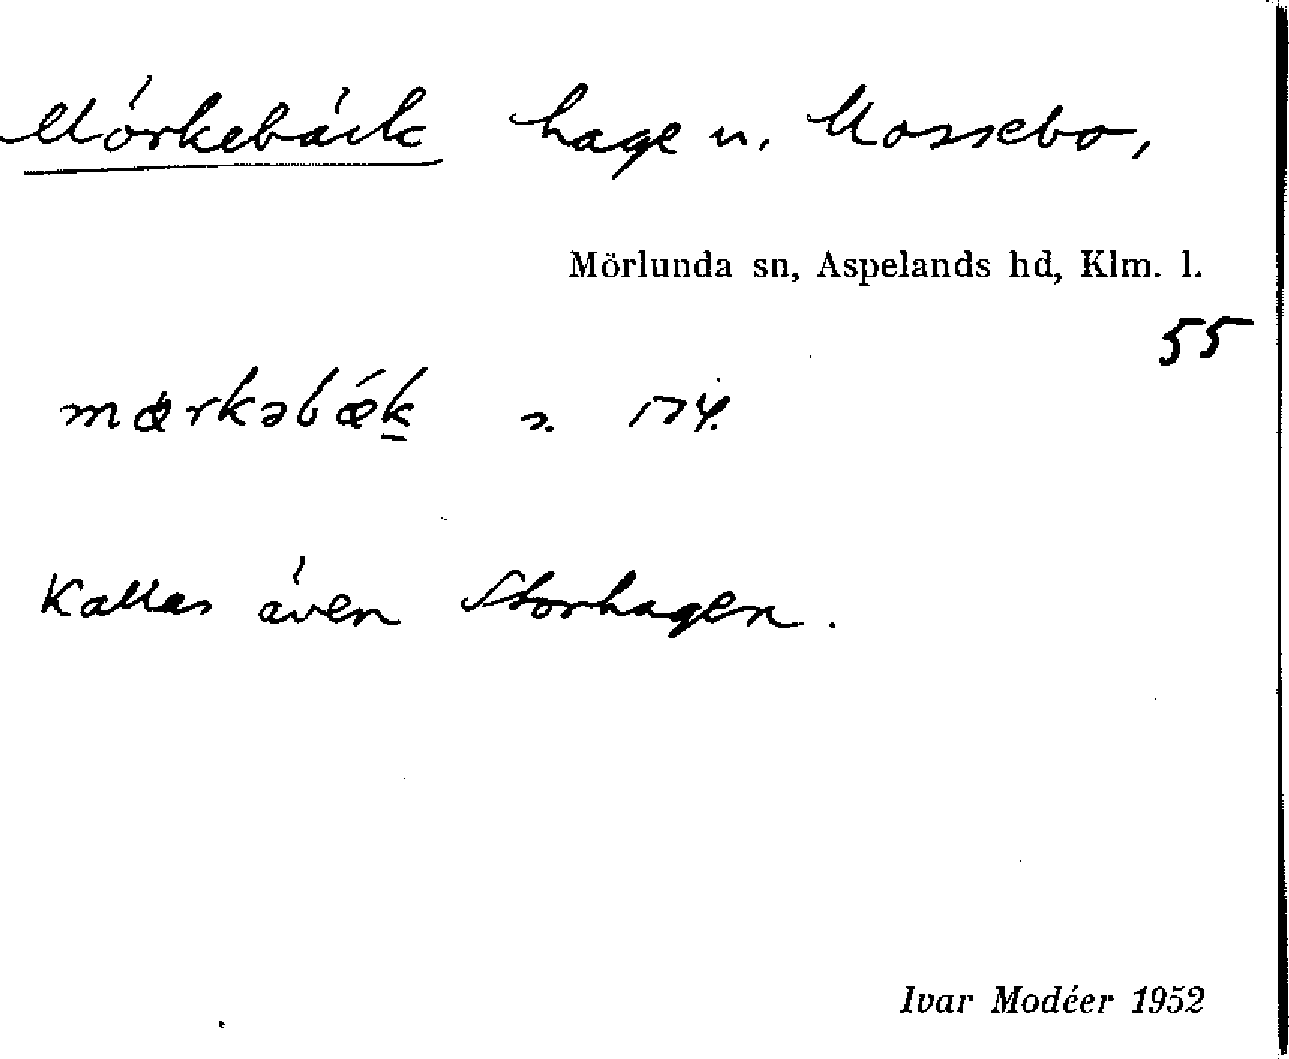 Mörkebäck hage u. Mossebo,
Mörlunda sn, Aspelands hd, Klm. l.
55
mœrkəbǽk
Kallas även Storhagen.
Ivar Modéer 1952